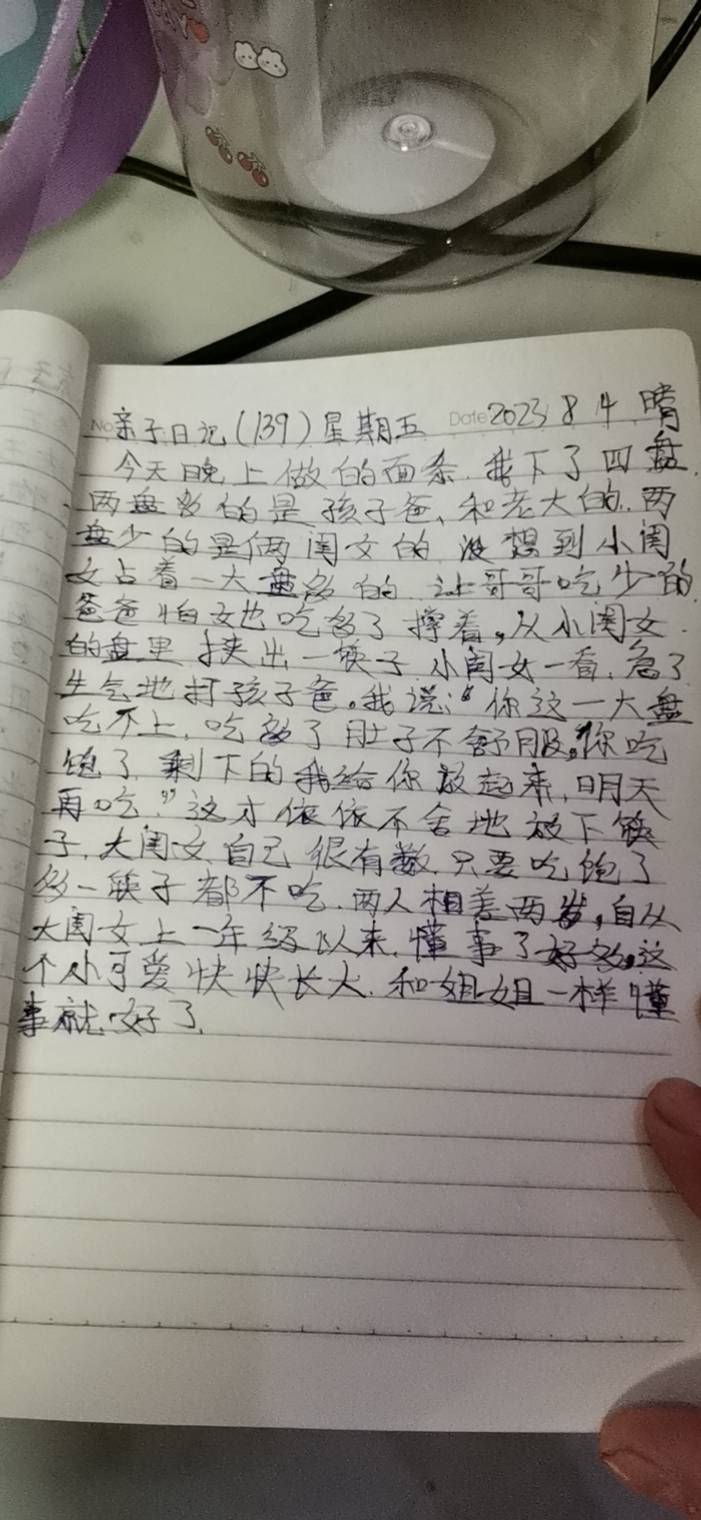 亲子日记(139)星期五 Date 2023 8 4 晴
今天晚上做的面条.我下了四盘.
两盘多的是孩子爸、和老大的.两
盘少的是俩闺女的.没想到小闺
女占着一大盘多的.让哥哥吃少的.
爸爸怕女也吃多了撑着,从小闺女
的盘里挟出一筷子.小闺女一看,急了
生气地打孩子爸。我说:“你这一大盘
吃不上,吃多了肚子不舒服。你吃
饱了剩下的我给你放起来,明天
再吃.”这才依依不舍地放下筷
子,大闺女自己很有数.只要吃饱了
多一筷子都不吃.两人相差两岁,自从
大闺女上一年级以来.懂事了好多,这
个小可爱快快长大.和姐姐一样懂
事就好了.